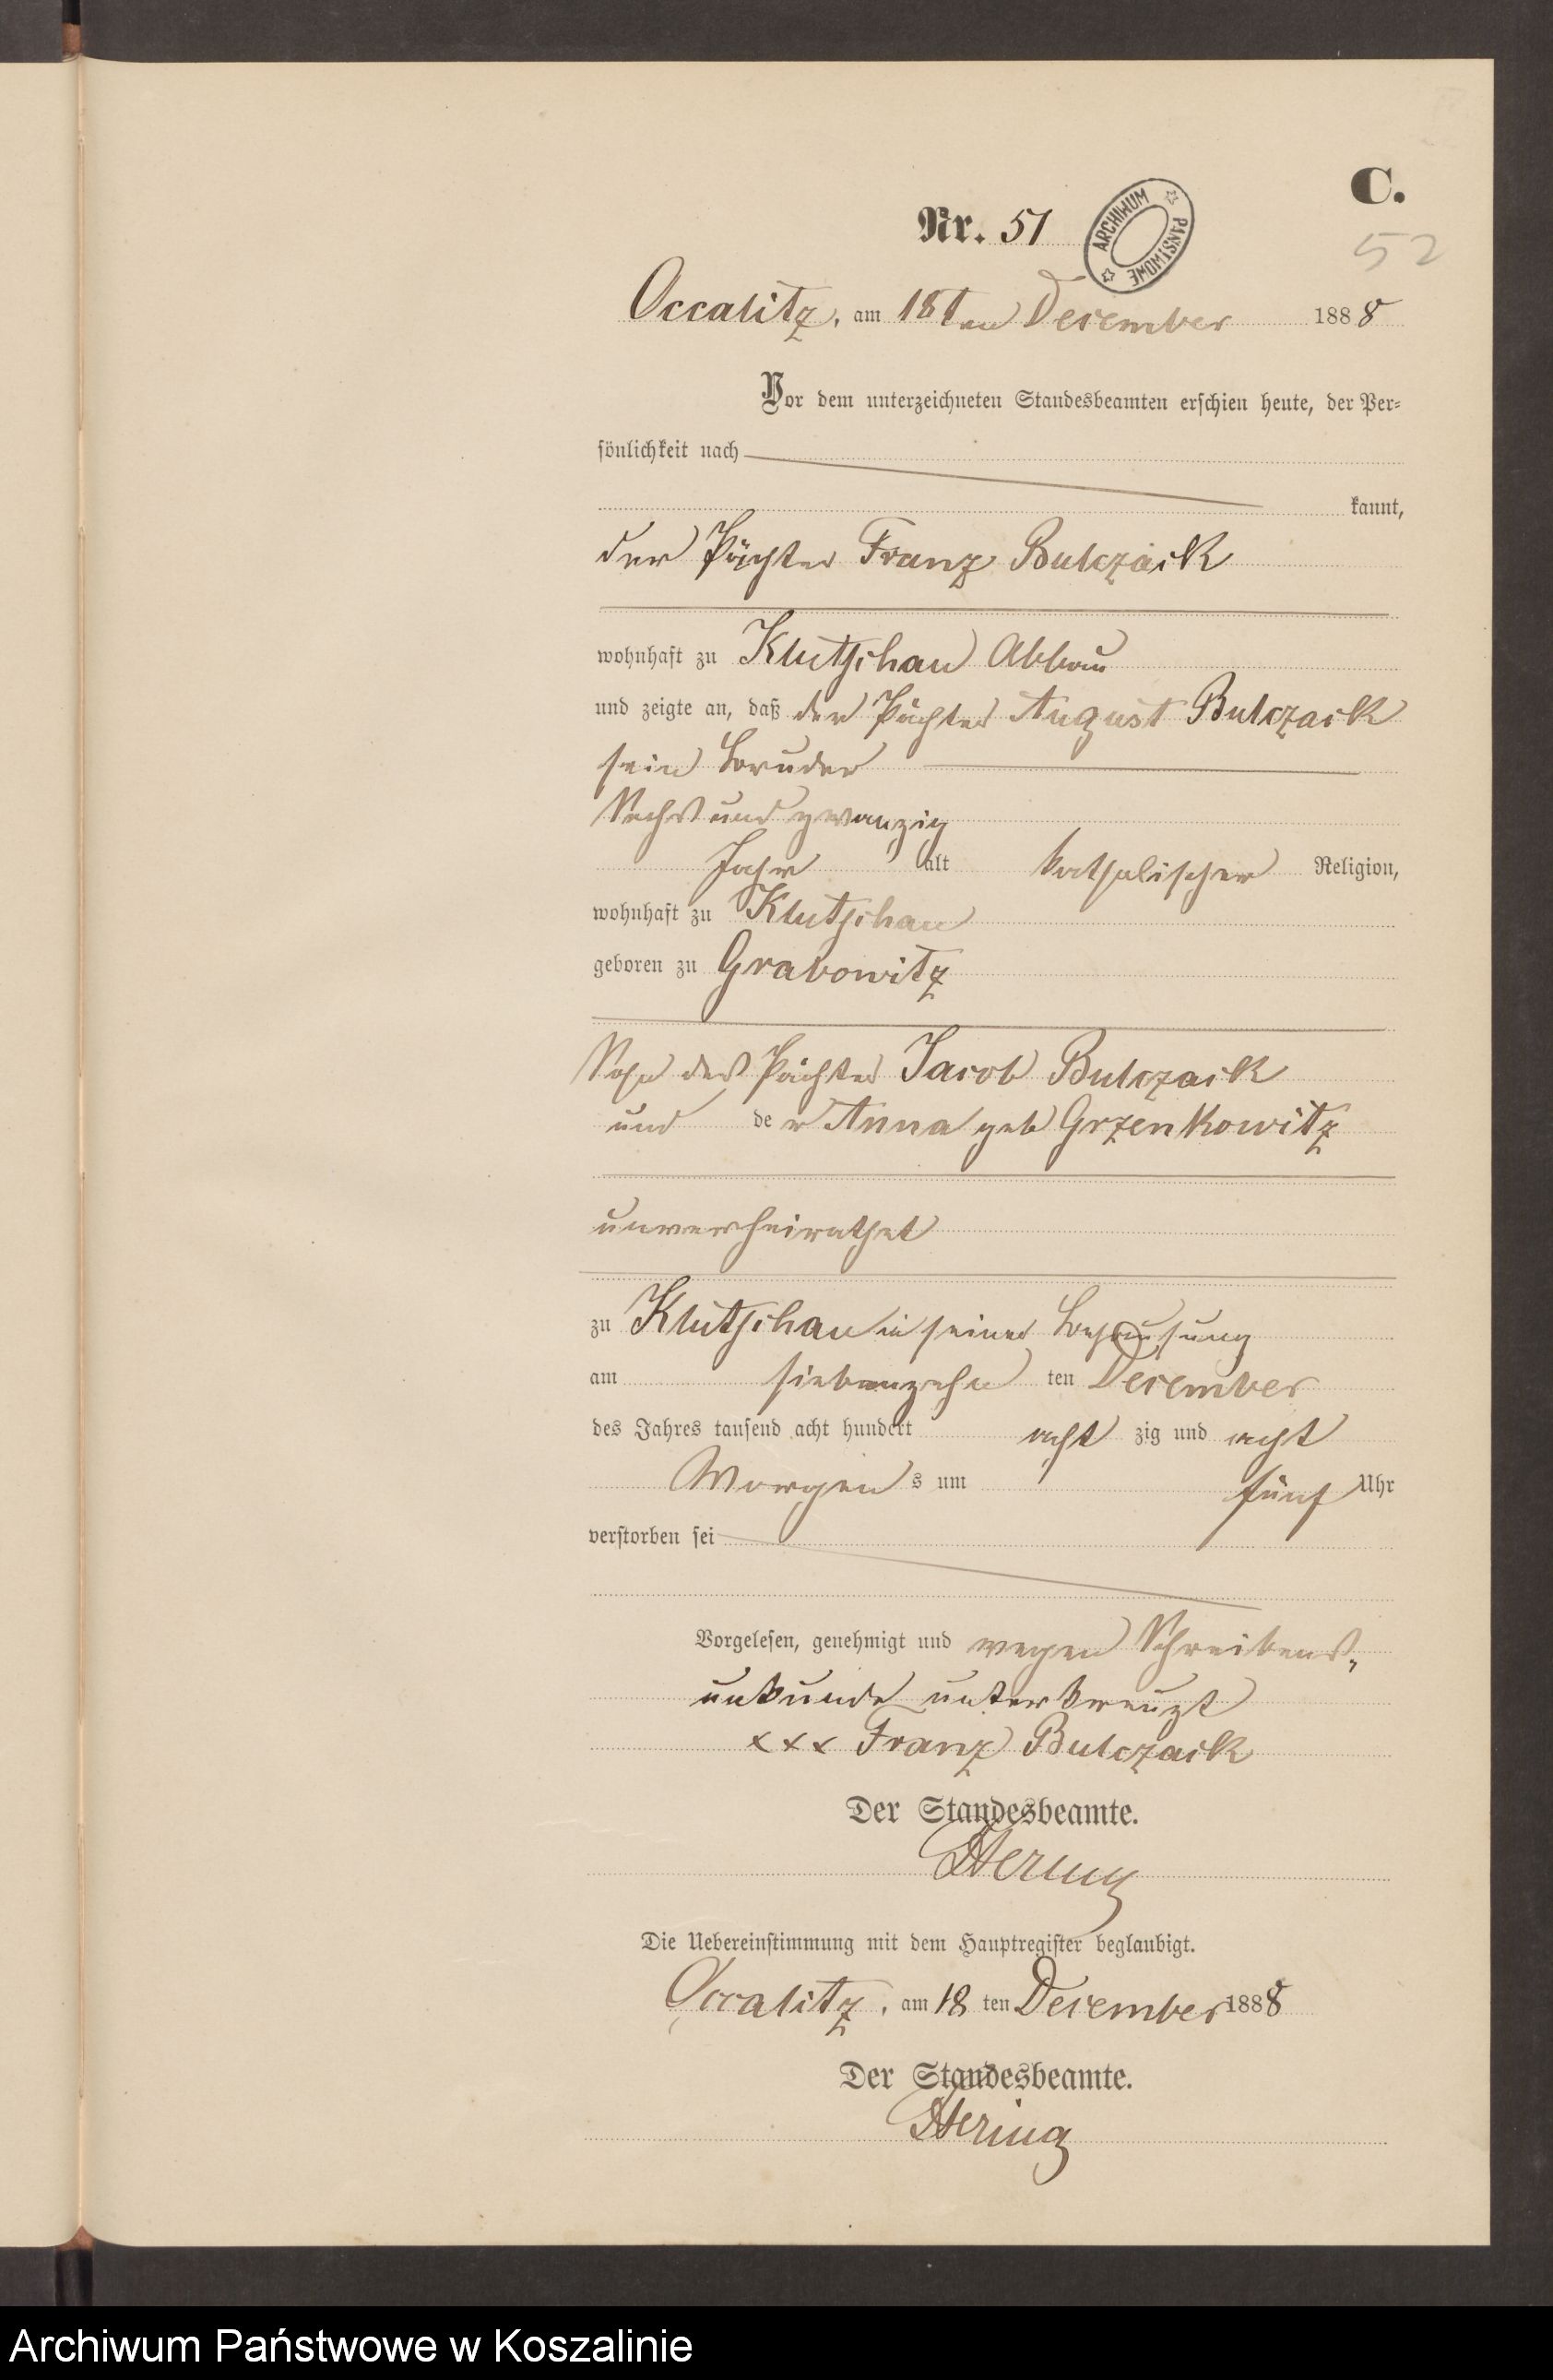 C.
Nr. 51
ARCHIWUM PAŃSTWOWE
52
Occalitz, am 18ten December 1888
Vor dem unterzeichneten Standesbeamten erschien heute, der Per-
sönlichkeit nach
kannt,
der Pächter Franz Bulczack
wohnhaft zu Klutschau Abbau
und zeigte an, daß der Pächter August Bulczack
sein Bruder
Sechs und zwanzig
Jahr alt katholischer Religion,
wohnhaft zu Klutschau
geboren zu Grabowitz
Sohn des Pächter Jacob Bulczack
und der Anna geb Grzenkowitz
unverheirathet
zu Klutschau in seiner Behausung
am siebenzehn ten December
des Jahres tausend acht hundert acht zig und acht
Morgens um fünf Uhr
verstorben sei
Vorgelesen, genehmigt und wegen Schreibens-
unkunde unterkreuzt
xxx Franz Bulczack
Der Standesbeamte.
Hering
Die Uebereinstimmung mit dem Hauptregister beglaubigt.
Occalitz, am 18 ten December 1888
Der Standesbeamte.
Hering
Archiwum Państwowe w Koszalinie